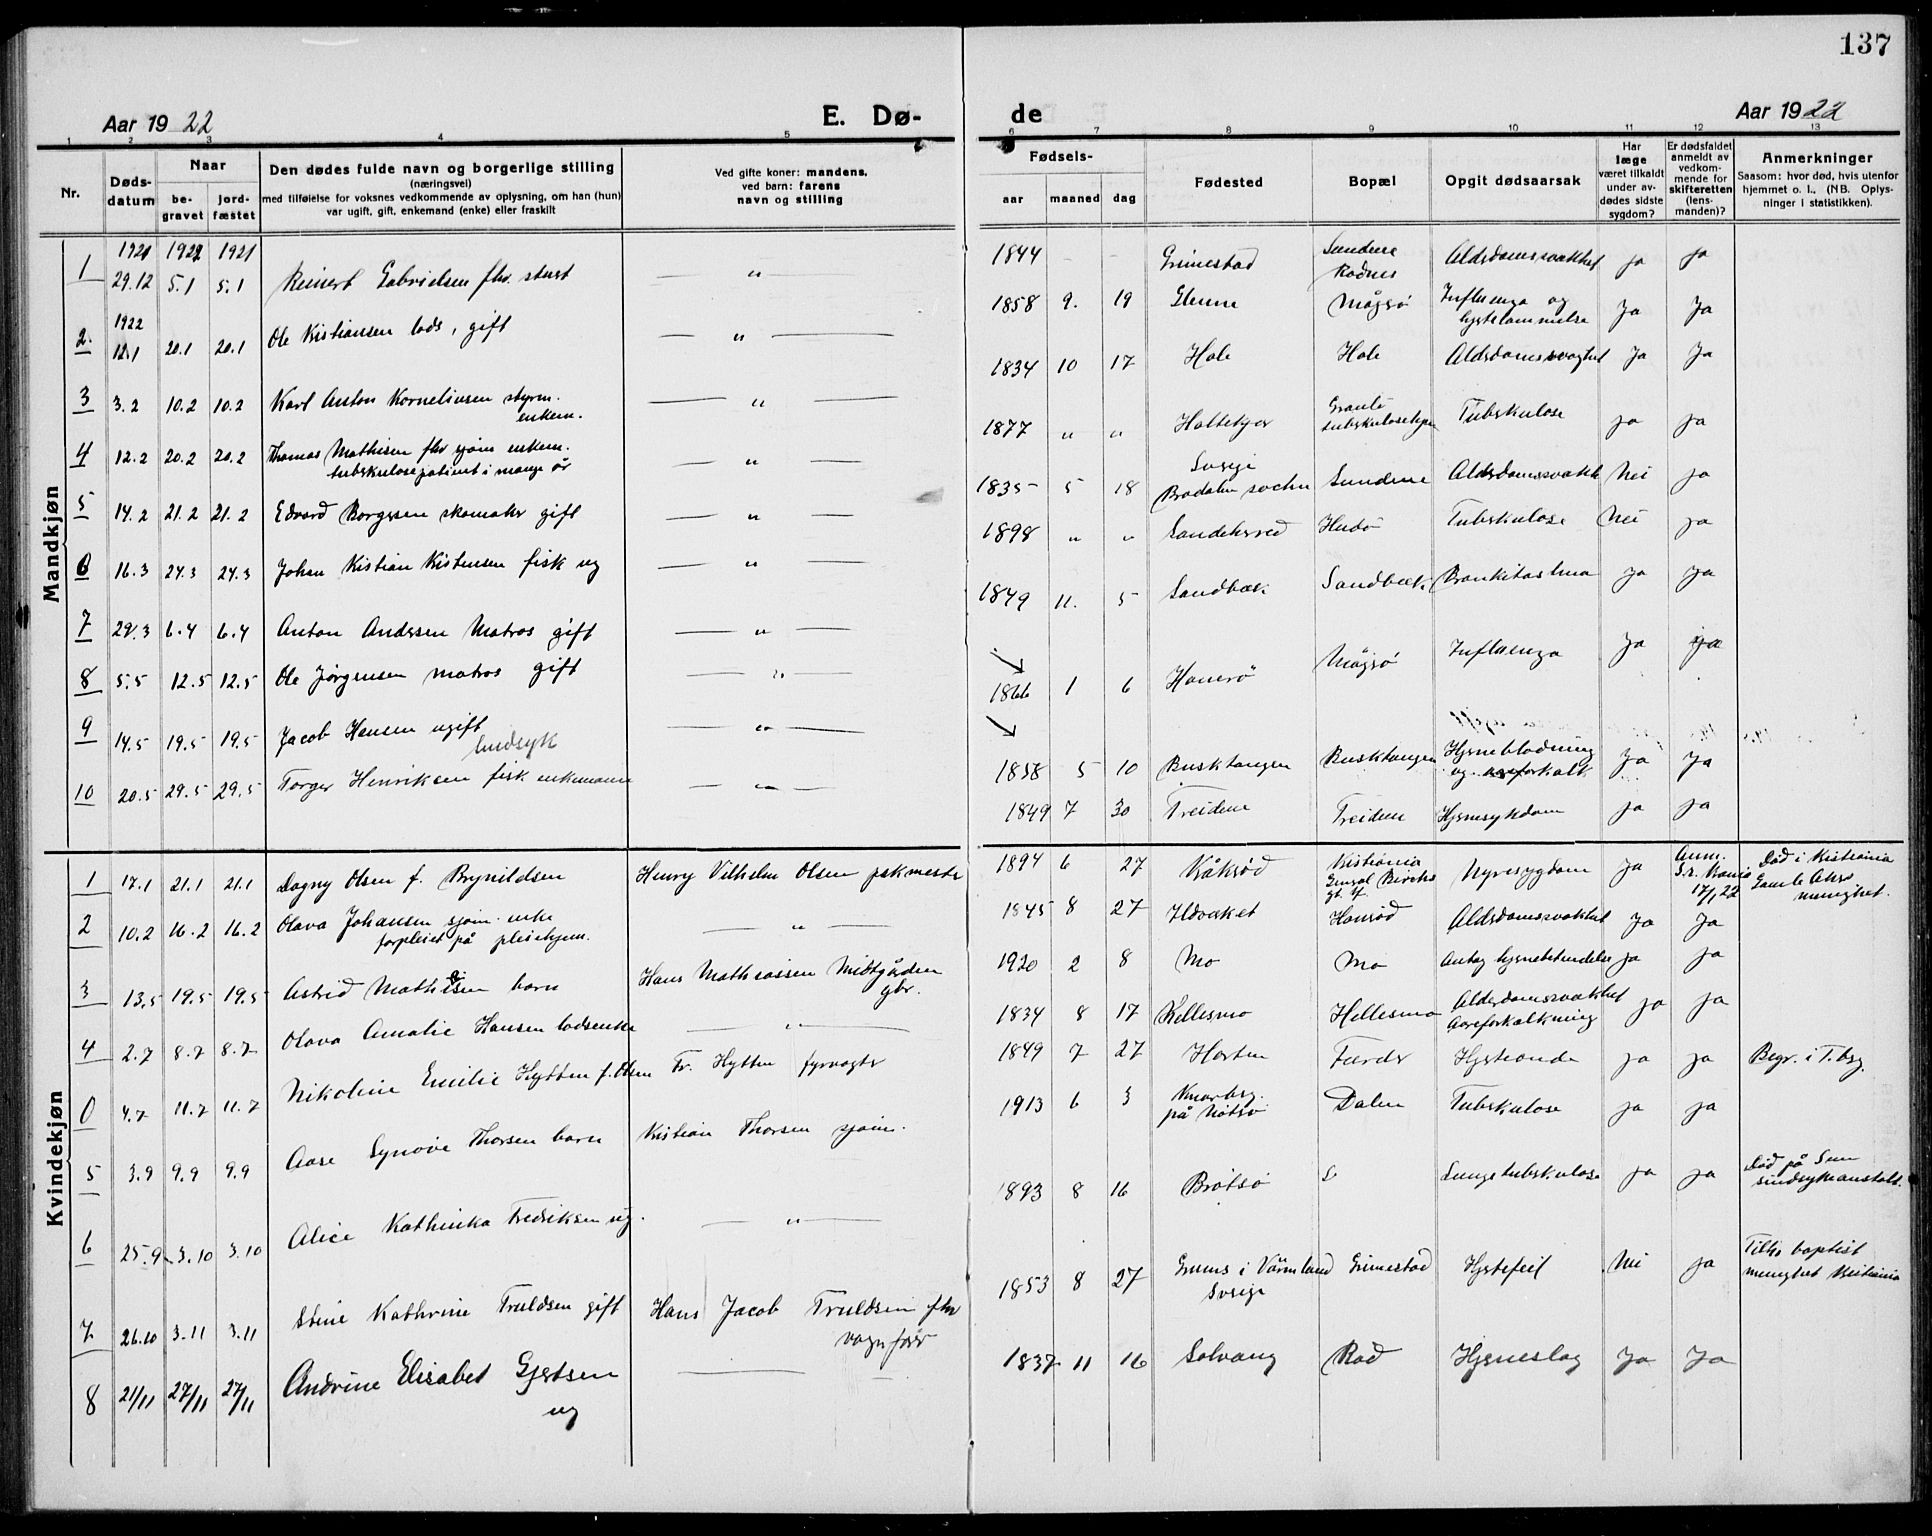 137
Aar 1922
E. Dø-
de
Aar 1922
1 2 3 4 5 6 7 8 9 10 11 12 13
Nr.
Døds-
datum
Naar
be-
gravet
jord-
fæstet
Den dødes fulde navn og borgerlige stilling
(næringsvei)
med tilføielse for voksnes vedkommende av oplysning, om han (hun)
var ugift, gift, enkemand (enke) eller fraskilt
Ved gifte koner: mandens,
ved barn: farens
navn og stilling
Fødsels-
aar maaned dag
Fødested
Bopæl
Opgit dødsaarsak
Har
læge
været tilkaldt
under av-
dødes sidste
sygdom?
Er dødsfaldet
anmeldt av
vedkom-
mende for
skifteretten
(lens-
manden)?
Anmerkninger
Saasom: hvor død, hvis utenfor
hjemmet o. l., (NB. Oplys-
ninger i statistikken).
Mandkjøn
1921 1922 1921
1 29.12 5.1 5.1 Reinert Gabrielsen fhv. — " — 1844 - - Grimestad Sundene Aldsdomssvakhet ja ja
1922
2. 12.1 20.1 20.1 Ole Kristiansen lods, gift — " — 1858 9. 19 Glenne Mågsø Influenza og Ja Ja
3 3.2 10.2 10.2 Karl Anton Korneliusen styrm. — " — 1834 10 17 Hole Hole Aldsdomssvaghet Ja Ja
enkem.
4 12.2 20.2 20.2 Thomas Mathisen fhv sjøm enkem. — " — 1877 " " Holtekjær Tubskulose ja ja
tubskulosepatient i mange år
5 14.2 21.2 21.2 Edvard Borgesen skomaker gift — " — 1835 5 18 Sverige Sundene Aldsdomssvakh Nei ja
6 16.3 24.3 24.3 Johan Kistian Kistensen fisk ug — " — 1898 " " Sandeherred Hudø Tubskulose Nei ja
7 29.3 6.4 6.4 Anton Andersen Matros gift — " — 1849 11. 5 Sandbæk Sandbæk Bronkitastma ja ja
8 5.5 12.5 12.5 Ole Jørgensen matros gift — " — 1866 1 6 Hanerø Mågsø Influenza Ja ja
9 14.5 19.5 19.5 Jacob Hansen ugift — " — 1858 5 10 Busktangen Busktangen Hjerneblødning Ja Ja
sindsyk og aareforkalk
10 20.5 29.5 29.5 Torger Henriksen fisk enkemann — " — 1849 7 30 Treidene Treidene Hjernesykdom Ja Ja
Kvindekjøn
1 17.1 21.1 21.1 Dagny Olsen f. Brynildsen Henry Vilhelm Olsen 1894 6 27 Kåksød Kistiania Nyresygdom Ja Anm. Død i Kistiania
17/1 22 Gamle Akers
menighet.
2 10.2 16.2 16.2 Olava Johansen sjøm. enke — " — 1845 8 27 Ildvaket Aldsdomssvakhet Ja Ja
forpleiet på pleiehjem.
3 13.5 19.5 19.5 Astrid Mathisen barn Hans Mathiassen Midtgården 1920 2 8 Mo Mo Ja Ja
gbr.
4 2.7 8.7 8.7 Olava Amalie Hansen lodsenke — " — 1834 8 17 Hellesmo Hellesmo Alderdomssvakhet ja ja
Aareforkalkning
0 4.7 11.7 11.7 Nikoline Emilie Hytten f. Olsen Fr. Hytten fyrvogter 1849 7 27 Horten Færder Hjerteonde ja ja Begr. i T.bg.
5 3.9 9.9 9.9 Aase Synøve Thorsen barn Kistian Thorsen sjøm. 1913 6 3 Knarbg. Dalen Tubskulose ja ja
på Nøtterø
6 25.9 3.10 3.10 Alice Kathinka Fredriksen ug. — " — 1893 8 16 Brøtsø Lungetubskulose ja ja Død på
sindsykeanstalt.
7 26.10 3.11 3.11 Stine Kathrine Truldsen gift Hans Jacob Truldsen fhv 1853 8 27 Grums i Värmland Grimestad Hjertefeil Nei ja Tilh. baptist
vognfører Sverige menighet Kristiania
8 21/11 27/11 27/11 Andrine Elisabet Gjertsen — 1837 11 16 Solvang Rød Hjerneslag Ja Ja
ug